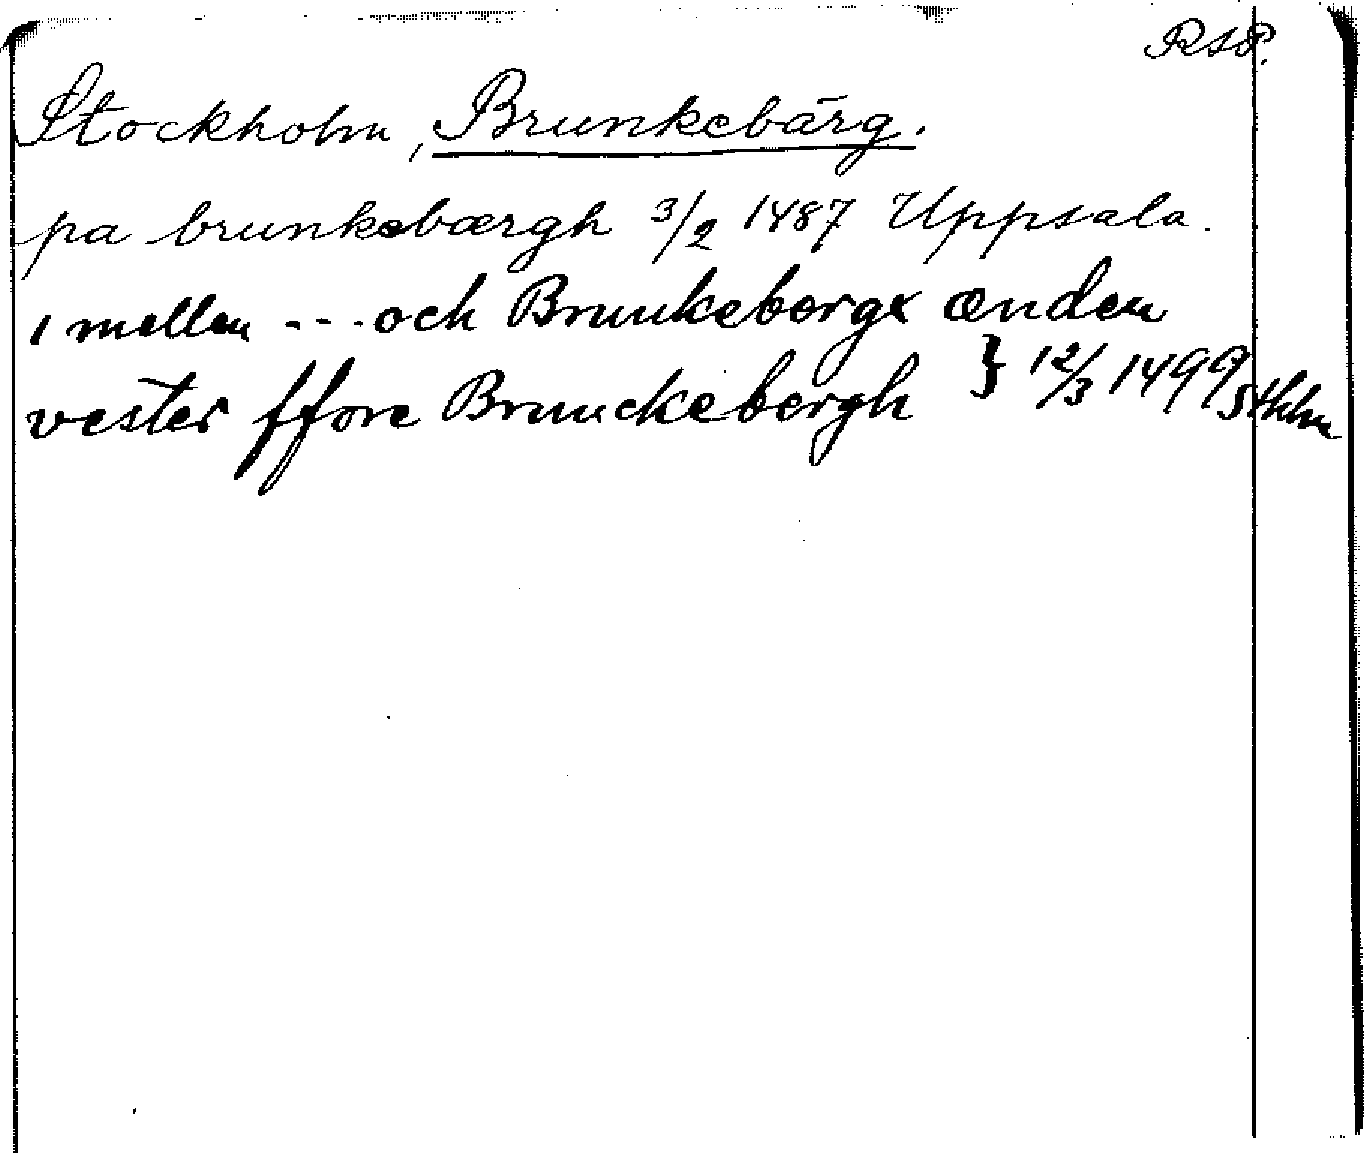 RSP.
Stockholm, Brunkebärg.
pa brunkebærgh 3/2 1487 Uppsala.
i mellen --- och Brunkebergx ænden
vester ffore Brunckebergh } 12/3 1499 Sthlm